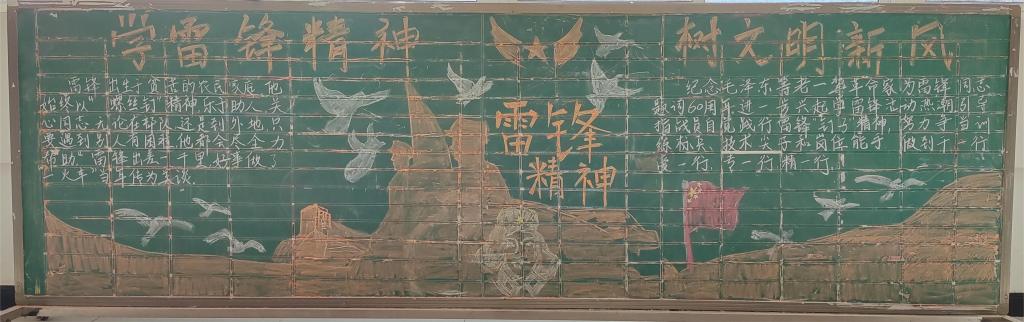 学雷锋精神
树文明新风
雷锋出生于贫苦的农民家庭，他
始终以“螺丝钉”精神乐于助人，关
心同志，无论在部队还是到外地，只
要遇到别人有困难他都会尽全力
帮助“雷锋出差一千里，好事做了
一火车”当年传为美谈。
雷锋
精神
纪念毛泽东等老一辈革命家为雷锋同志
题词60周年进一步兴起学雷锋活动热潮引导
指战员自觉践行雷锋 精神，努力 当训
练标兵、技术尖子和岗位能手，做到干一行
爱一行，专一行精一行。